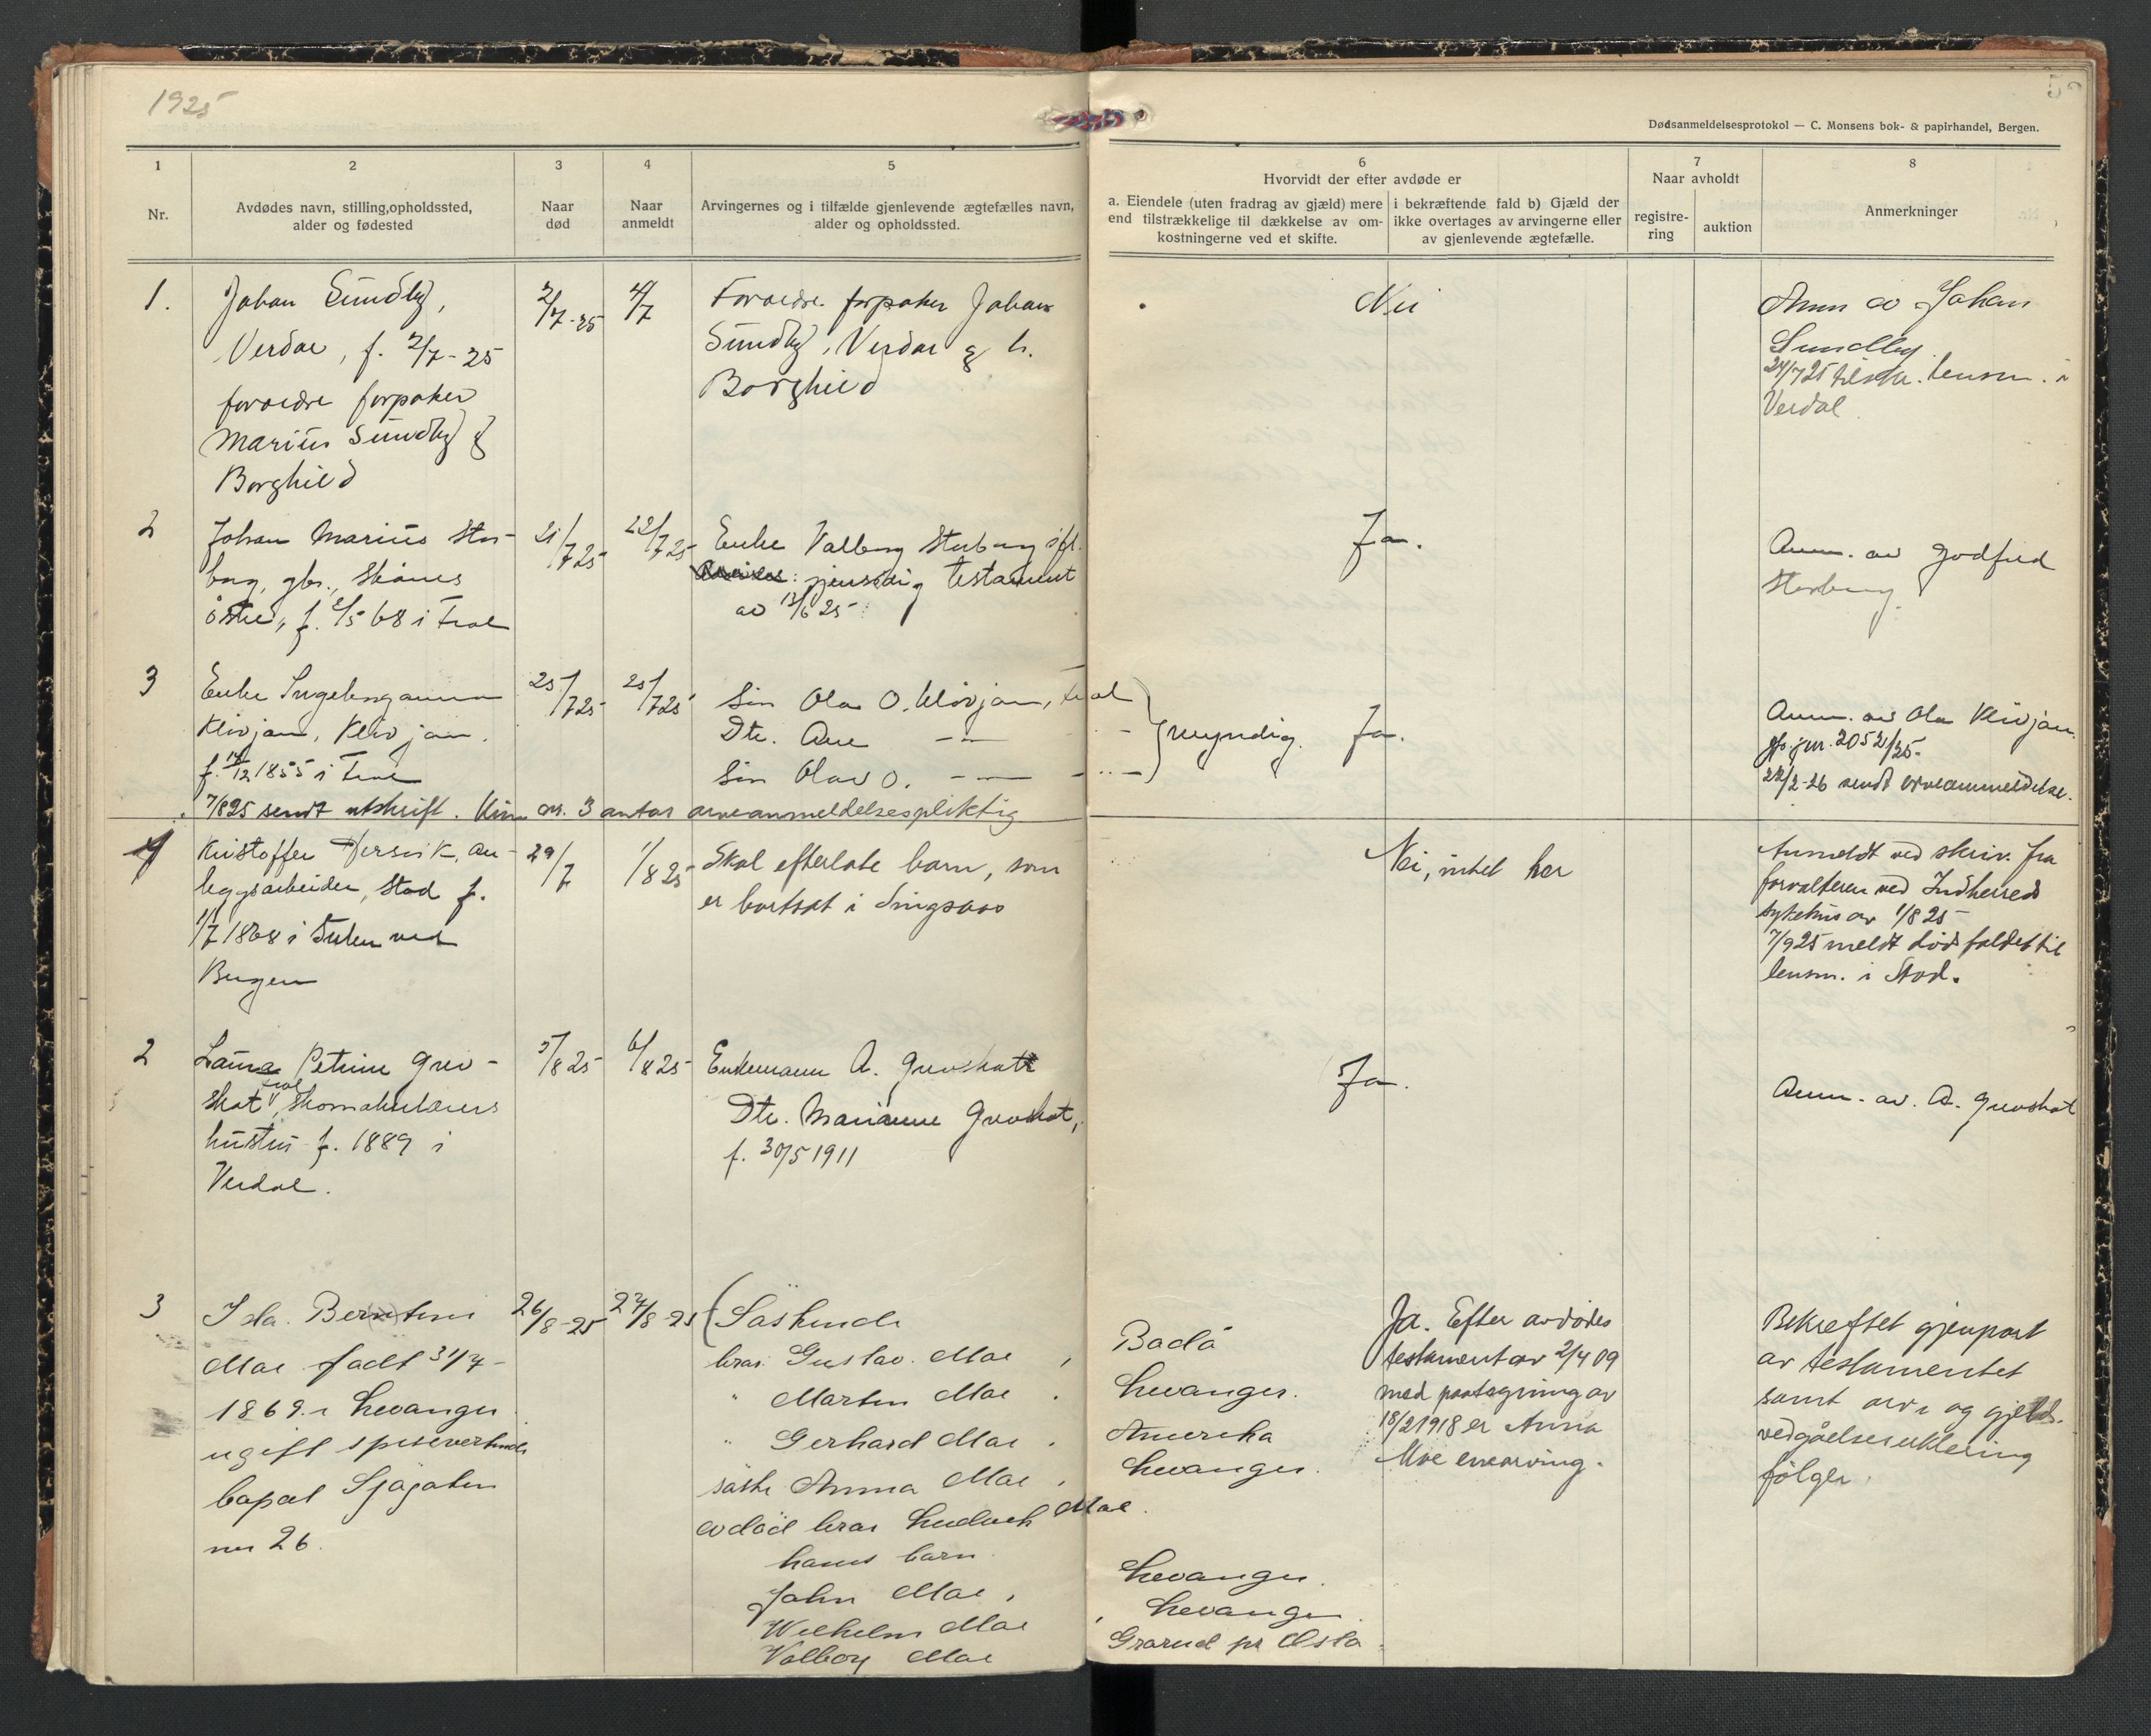 1925
5
Dødsanmeldelsesprotokol — C. Monsens bok- & papirhandel, Bergen.
1
2
3
4
5
6
7
8
Nr.
Avdødes navn, stilling, opholdssted,
alder og fødested
Naar
død
Naar
anmeldt
Arvingernes og i tilfælde gjenlevende ægtefælles navn,
alder og opholdssted.
Hvorvidt der efter avdøde er
a. Eiendele (uten fradrag av gjæld) mere
end tilstrækkelige til dækkelse av om-
kostningerne ved et skifte.
i bekræftende fald b) Gjæld der
ikke overtages av arvingerne eller
av gjenlevende ægtefælle.
Naar avholdt
registre-
ring
auktion
Anmerkninger
1.
Johan Sundby,
Verdal, f. 2/7-25
forældre forpakter
Marius Sundby &
Borghild
2/7-25
4/7
Forældre forpakter Johan
Sundby, Verdal & h.
Borghild
Nei
Anm av Johan
Sundby.
24/725 tilskr. lensm. i
Verdal.
2
Johan Marius Stor-
borg, gbr., Skånes
østre, f. 2/5 68 i Frol
21/725
22/725
Enke Valborg Storborg ifl.
gjensidig testament
av 12/6 25
Ja.
Anm. av Godfred
Storborg.
3
Enke Ingeborganna
Klivjan, Klivjan.
f. 14/12 1855 i Frol
25/725
25/725
Søn Ola O. Klivjan, Frol
Dtr. Ane — —
Søn Olav O. — —
myndig.
Ja.
Anm. av Ola Klivjan.
jfr. jnr. 2052/25.
22/2-26 sendt arveanmeldelse.
7/825 sendt utskrift. Kun nr. 3 antas arveanmeldelsespliktig
4
Kristoffer Versvik, an-
leggsarbeider, Stod f.
1/7 1868 i
Bergen
29/7
1/825
Skal efterlate barn, som
er bortsat i Singsaas
Nei, intet her
Anmeldt ved skriv. fra
forvalteren ved Indherreds
sykehus av 1/825
7/925 meldt dødsfaldet til
lensm. i Stod.
2
Laura Petrine Grev-
skot, Frol, skomakerlærers
hustru f. 1889 i
Verdal.
5/825
6/825
Enkemann A. Grevskott
Dtr. Marianne Grevskot,
f. 30/5 1911
Ja.
Anm. av. A. Grevskot
3
Ida. Berntine
Moe født 31/7-
1869. i Levanger
ugift spisevert
bopæl Sjøgaten
nr 26.
26/8-25
27/8-25
(Søskende
bror Gustav. Moe, Bodø
" Morten Moe. Levanger.
" Gerhard Moe. Amerika
søster Anna Moe, Levanger.
avdød bror Ludvik Moe.
hans barn.
John Moe, Levanger.
Wilhelm Moe, Levanger.
Valborg Moe Grorud pr Oslo.
Ja. Efter avdødes
testament av 2/4 09
med paategning av
18/2 1918 er Anna
Moe enearving.
Bekræftet gjenpart
av testamentet
samt arve og gjelds-
vedgåelseserklæring
følger.